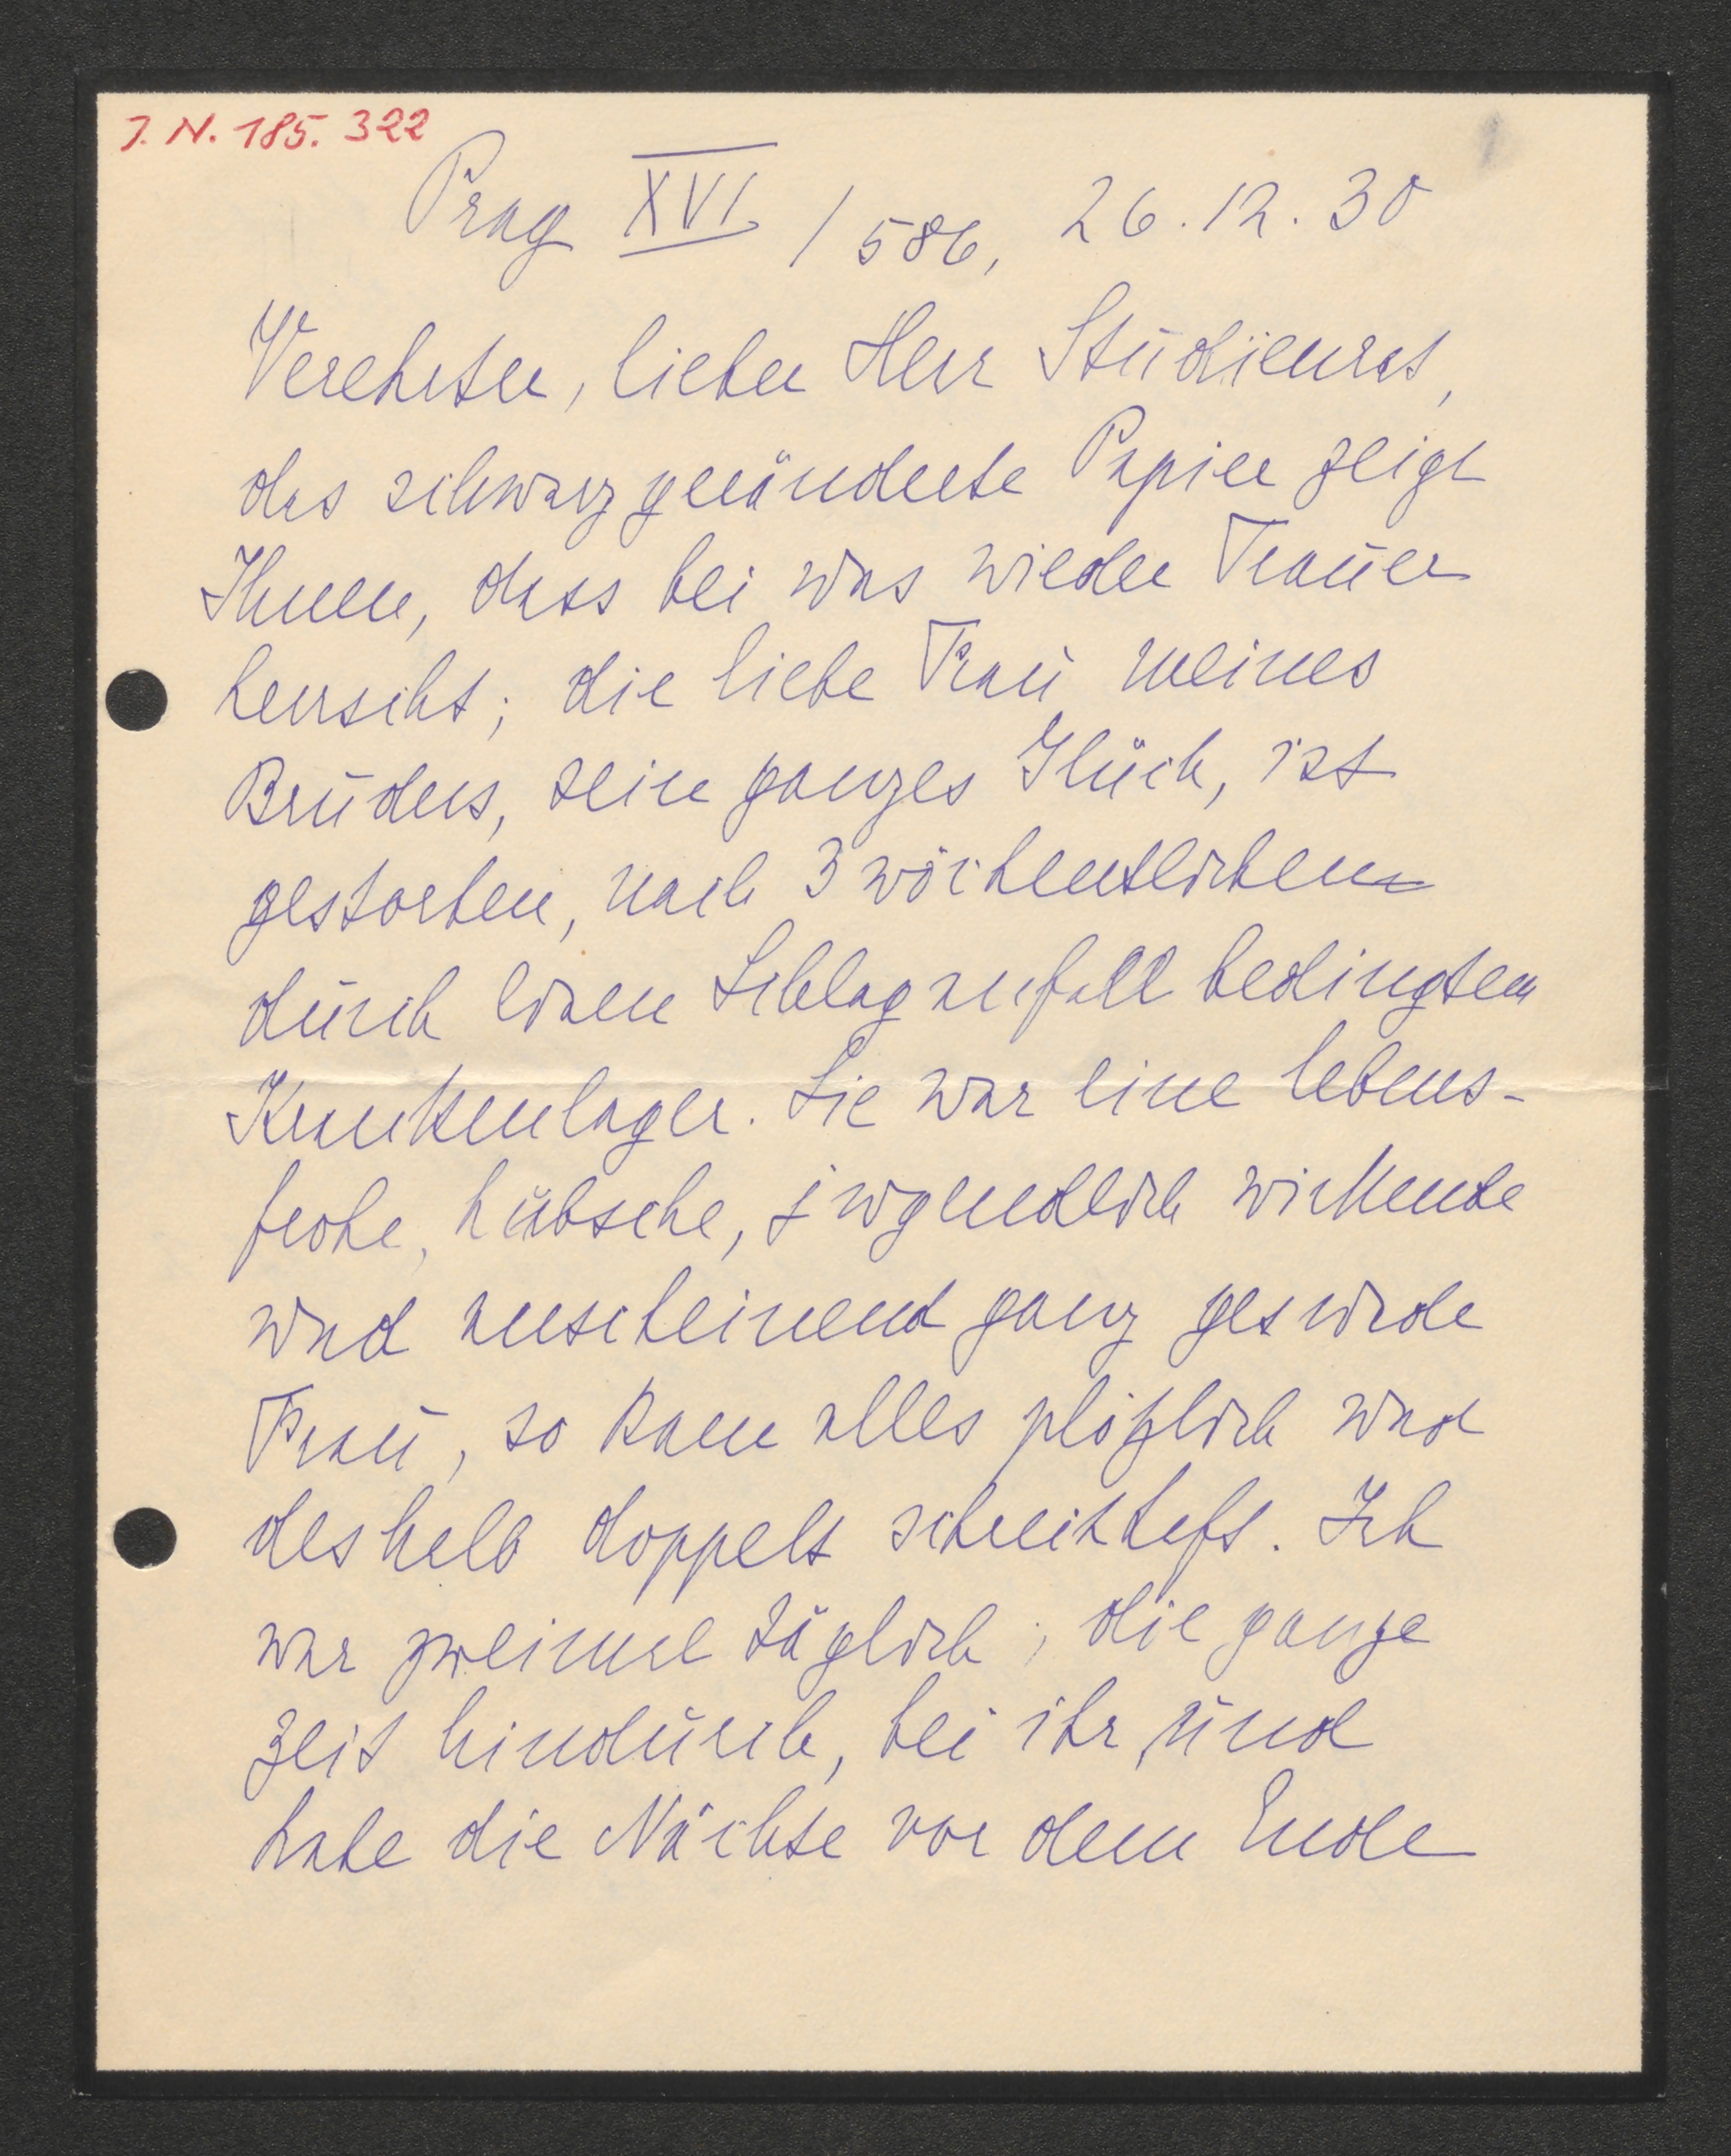 J. N. 185. 322
Prag XVI / 586, 26.12.30
Verehrter, lieber Herr Studienrat,
das schwarzgeränderte Papier zeigt
Ihnen, dass bei uns wieder Trauer
herrscht; die liebe Frau meines
Bruders, sein ganzes Glück, ist
gestorben, nach 3 wöchentlichem
durch einen Schlaganfall bedingten
Krankenlager. Sie war eine lebens-
frohe, hübsche, jugendlich wirkende
und anscheinend ganz gesunde
Frau, so kam alles plötzlich und
deshalb doppelt schreckhaft. Ich
war zweimal täglich, die ganze
Zeit hindurch, bei ihr und
habe die Nächte vor dem Ende